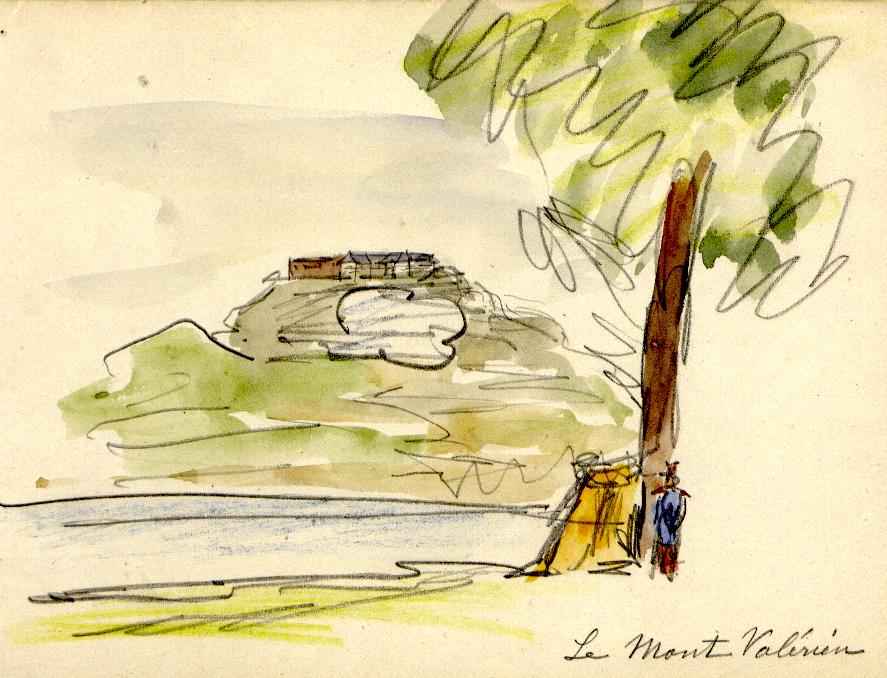 Le Mont Valérien